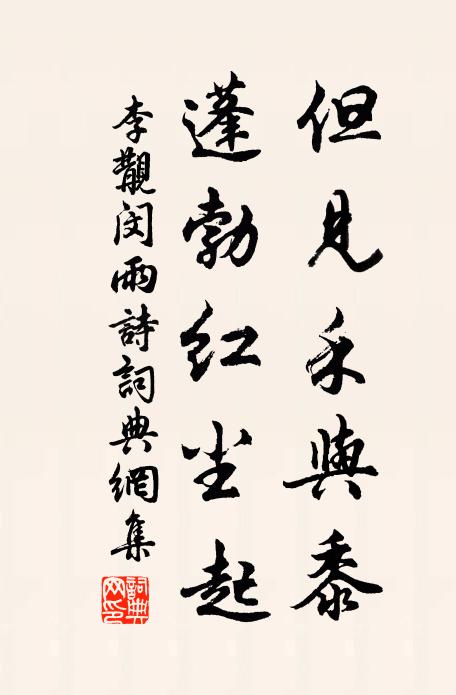 但見禾與黍
蓬勃紅尘起
李覯閔雨詩詞典網集
詞典
网印